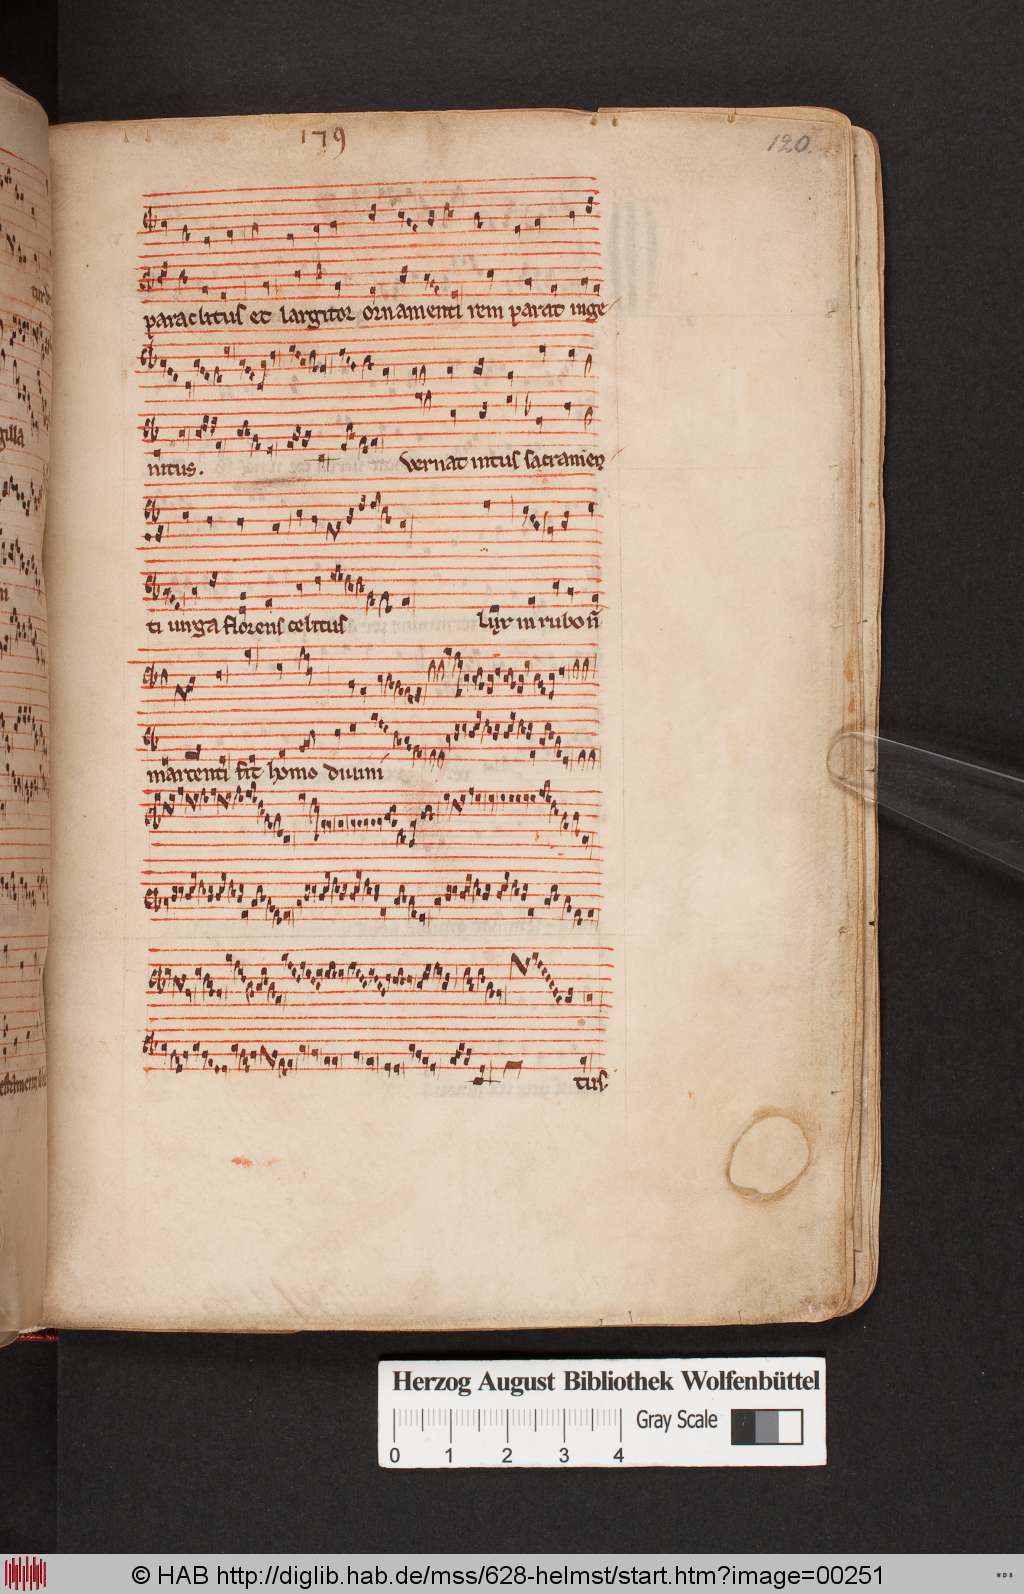 179
120.
paraclitus et largitor ornamenti rem parat inge
nitus. vernat intus sacramen
ti virga florens celitus lux in rubo n̄
marcenti fit homo diuini
tus.
Herzog August Bibliothek Wolfenbüttel
Gray Scale
0 1 2 3 4
© HAB http://diglib.hab.de/mss/628-helmst/start.htm?image=00251